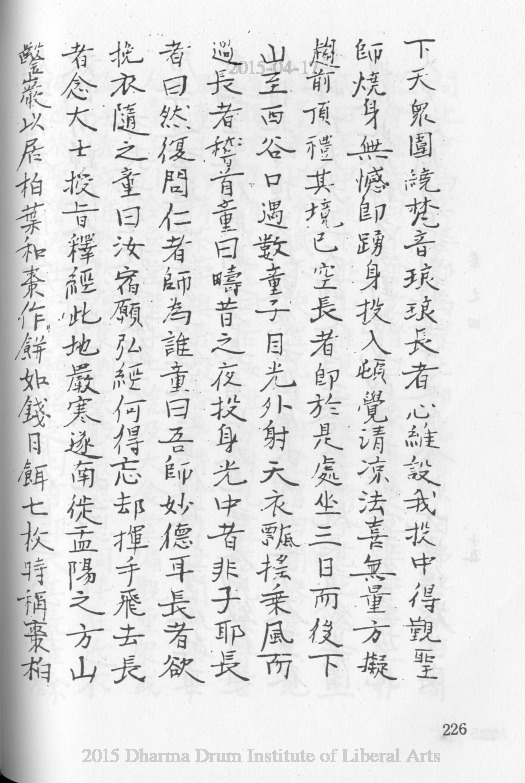 下天眾圍繞梵音琅琅長者心維設我投中得觀聖
師燒身無憾即踴身投入頓覺清凉法喜無量方擬
趨前頂禮其境已空長者即於是處坐三日而後下
山至西谷口遇數童子目光外射天衣飄搖乘風而
過長者稽首童曰疇昔之夜投身光中者非子耶長
者曰然復問仁者師為誰童曰吾師妙德耳長者欲
挽衣隨之童曰汝宿願弘經何得忘却揮手飛去長
者念大士授旨釋經此地嚴寒遂南徙盂陽之方山
鑿巖以居柏葉和棗作餅如錢日餌七枚時稱棗柏
226
2015-04-17
2015 Dharma Drum Institute of Liberal Arts